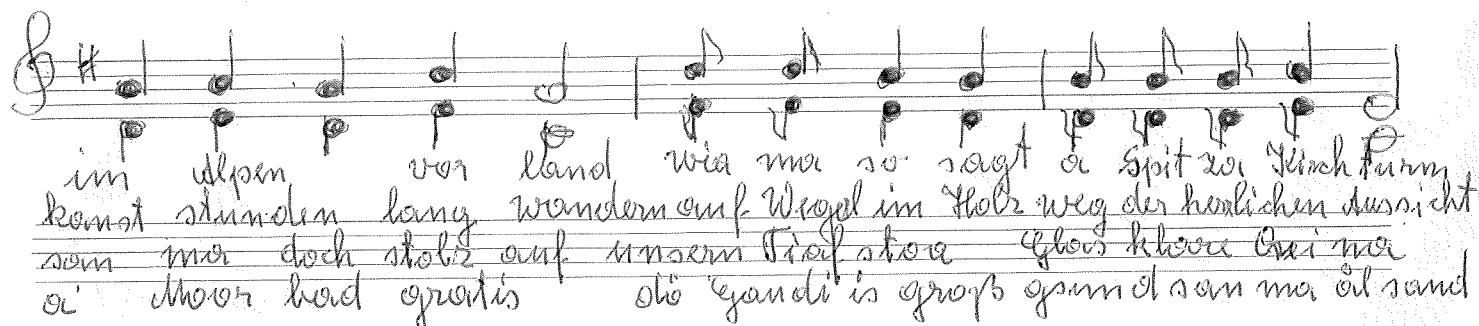 im Alpen vor land wia ma so sagt a Spit za Kirch turm
kanst stunden lang wandern auf Wegal im Holz weg der herlichen Aussicht
san ma doch stolz auf unsern Tiaf stoa Glas klare
a Moor bad gratis dö Gaudi is groß gsund san ma ål sand